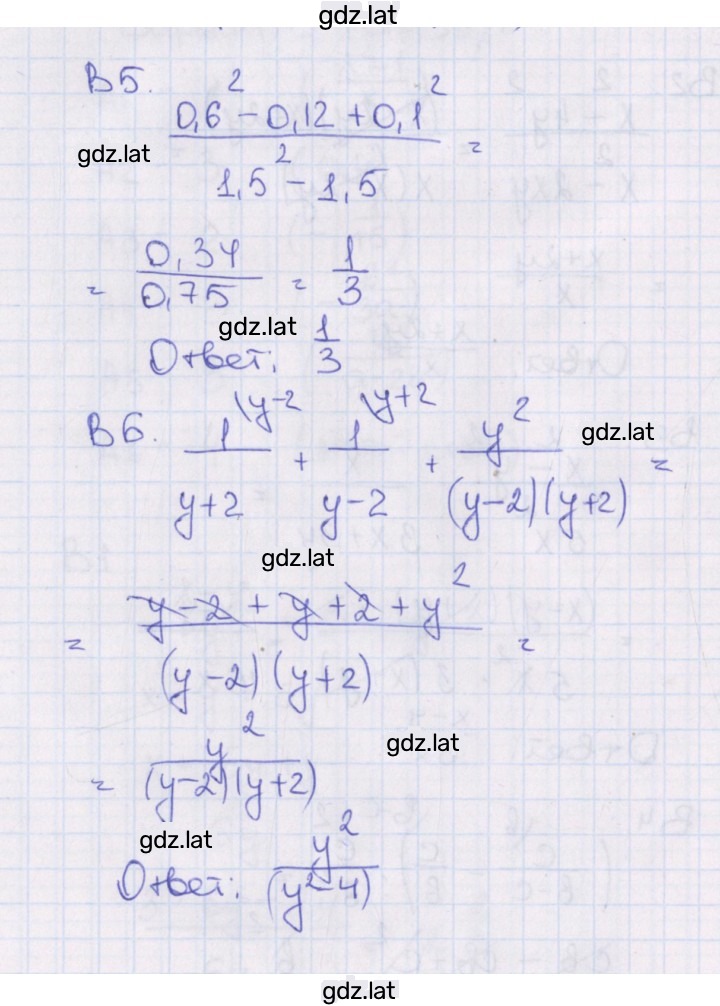 gdz.lat
В5.
(0,6² - 0,12 + 0,1²) / (1,5² - 1,5) =
gdz.lat
= 0,34 / 0,75 = 1/3
gdz.lat
Ответ: 1/3
В6. 1/(y+2) \y-2 + 1/(y-2) \y+2 + y²/((y-2)(y+2)) =
gdz.lat
gdz.lat
= (y - 2 + y + 2 + y²) / ((y-2)(y+2)) =
gdz.lat
= y² / ((y-2)(y+2))
gdz.lat
Ответ: y² / (y²-4)
gdz.lat